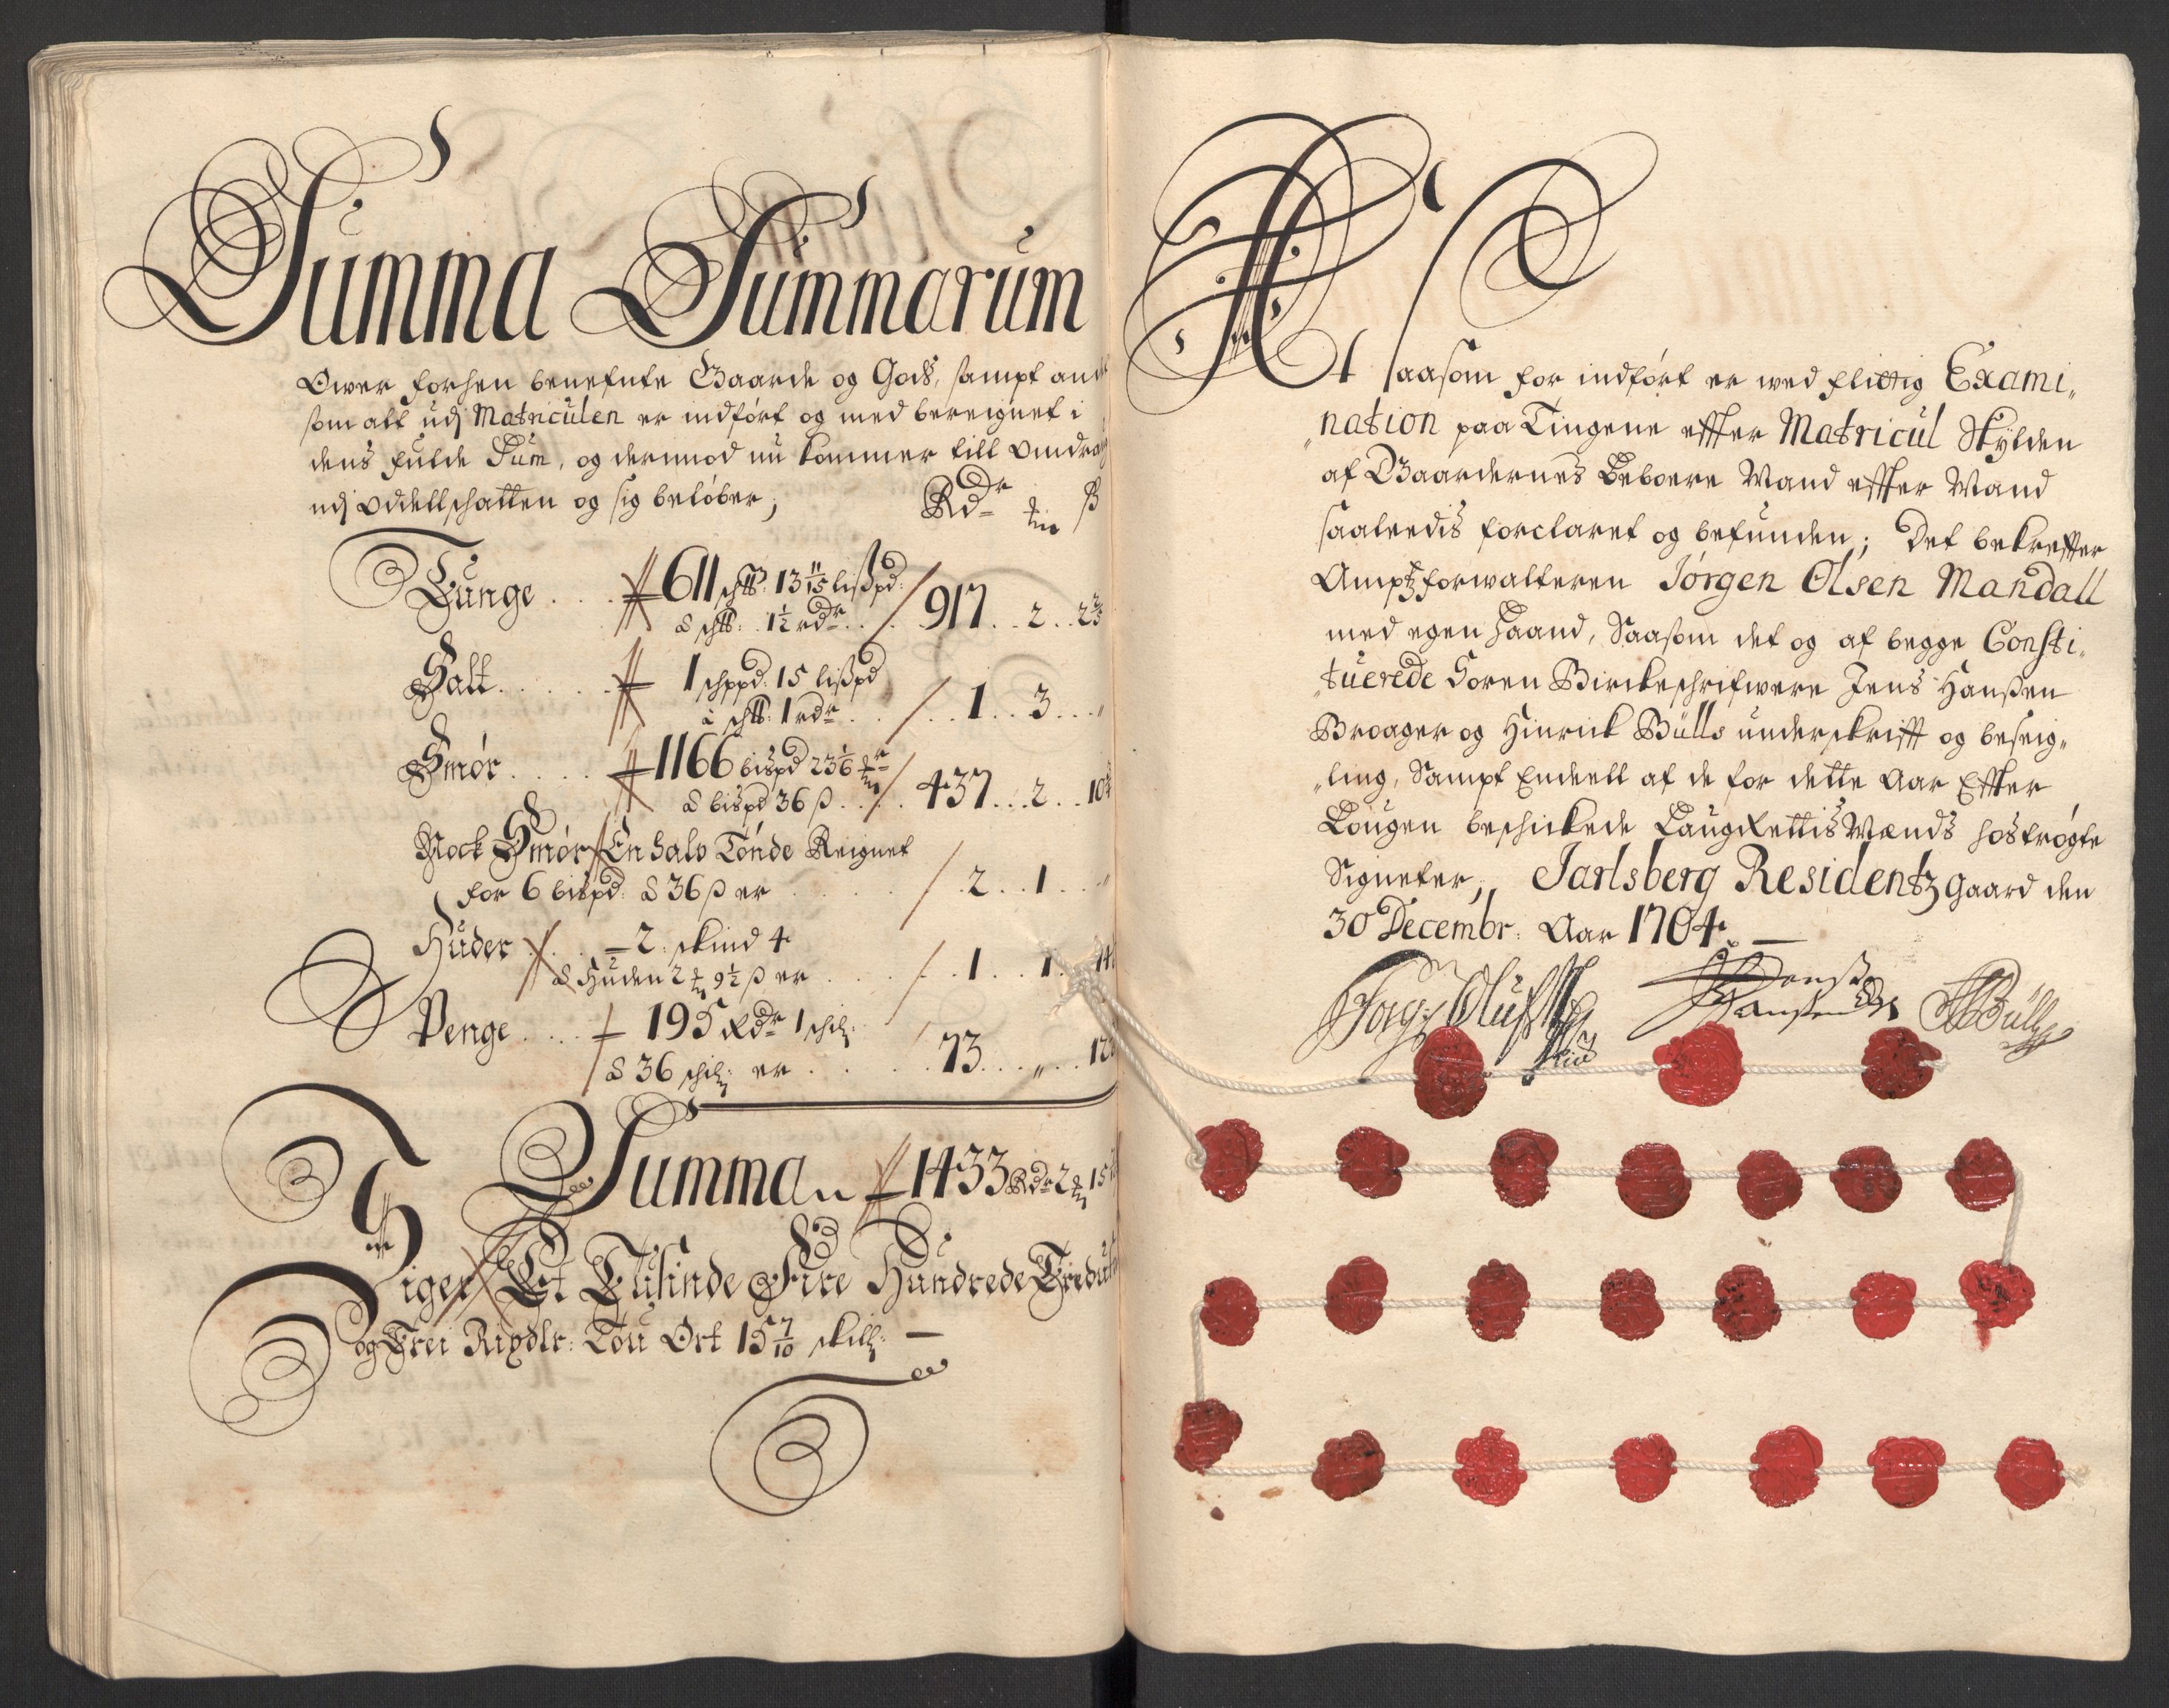 Summa Summarum
Ower forhen benefnte Gaarde og Gods, sampt andet
som alt udj Matriculen er indført og med bereignet i
dens fulde Sum, og dermod nu kommer till
udj Odellschatten og sig beløber;
Rdr ß
Tunge . . . 611 sch℔: 13 11/15 lißpd:
a sch℔: 1½ rdr . . . 917 . . 2 . . 2
Salt . . . . . 1 schppd: 15 lißpd
a sch℔: 1 rdr . . . 1 . . 3 . . "
Smør . . . . 1166 bispd 23 1/6
a bispd 36 ß . . . 437 . . 2 . . 10
Nock Smør En halv Tønde Reignet
for 6 bispd: a 36 ß er . . . 2 . . 1 . . "
Huder . . . 2: skind 4
a Huden 2 9½ ß er . . . 1 . . 1 . .
Penge . . . . 195 Rdr 1 schil:
a 36 schil: er . . . 73 . . " . . 12
Summa 1433 Rdr 2 15
Siger Et Tusinde Fire Hundrede Tredive
og Trei Rixdlr: Tou Ort 15 7/10 skill: —
At saasom for indført er wed flittig Exami„
„nation paa Tingene effter Matricul Skylden
af Gaardernes Beboere Mand effter Mand
saaleedis forclaret og befunden; Det bekreffter
Amptzforwalteren Jørgen Olsen Mandall
med egen Haand, Saasom det og af begge Consti„
„tuerede Soren Birckeschrifwere Jens Hanßen
Broager og Hinrick Bülls underskrifft og beseig„
„ling, Sampt Endeell af de for dette Aar Effter
Lougen beschickede LaugRettisMænds hostrøgte
Signeter, Jarlsberg Residentz gaard den
30 Decembr: Aar 1704. —
Jørg: Olufs Jens Hansen HBüll